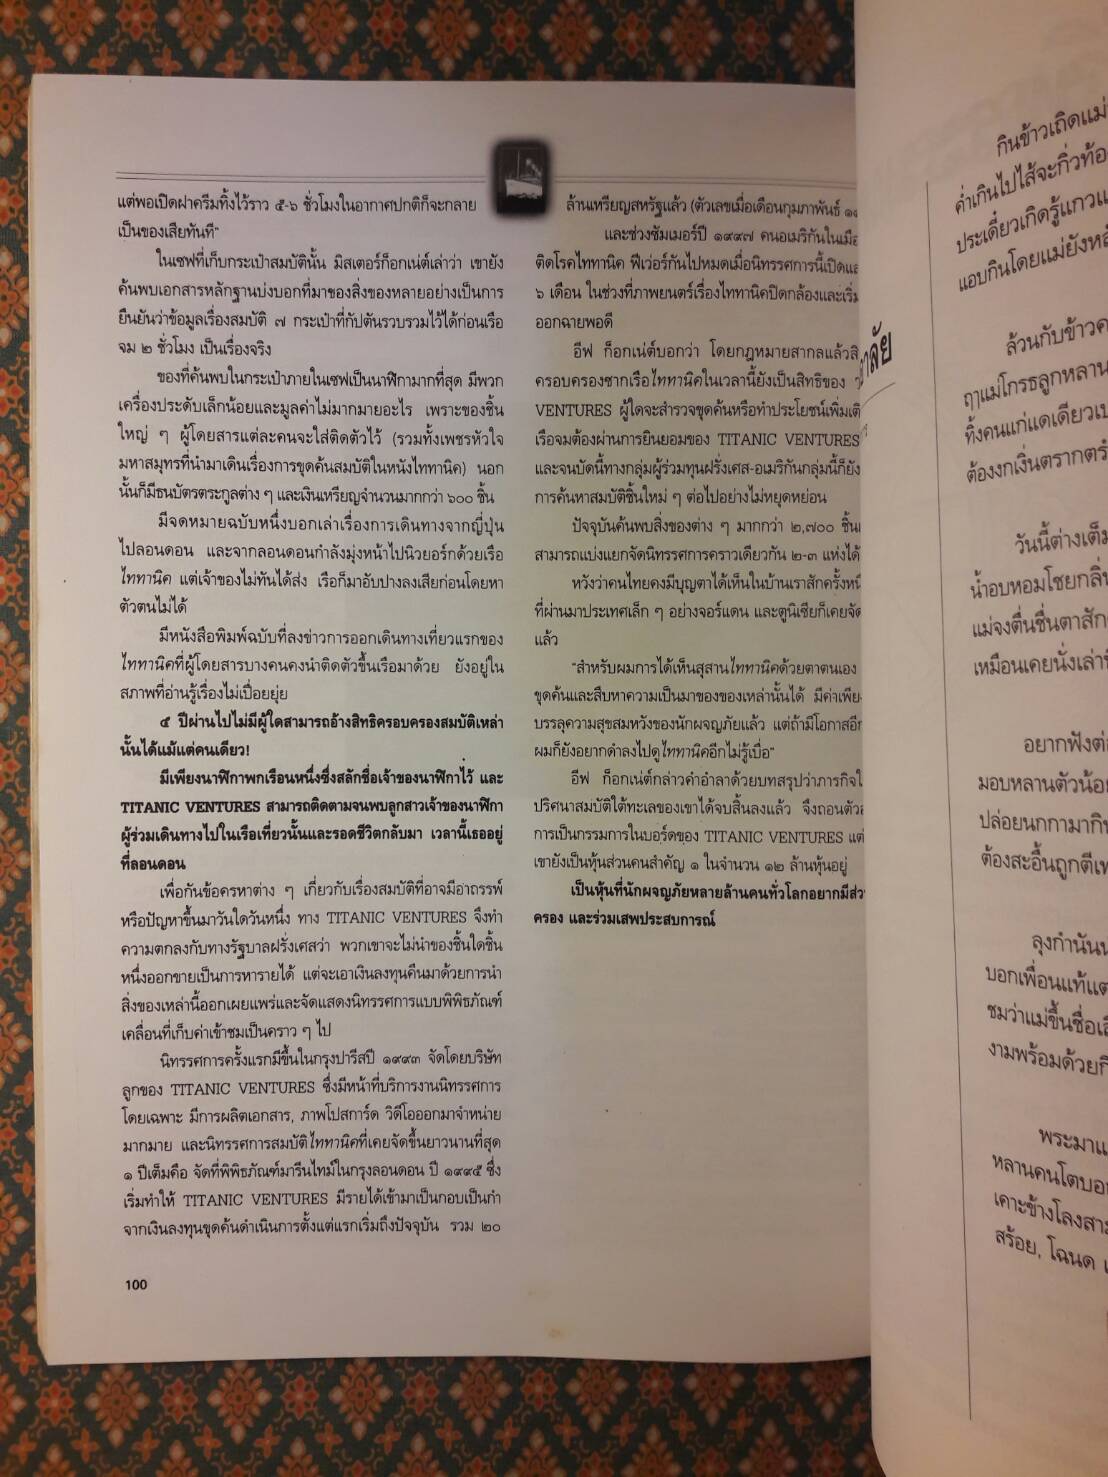 แต่พอเปิดฝาครีมทิ้งไว้ราว ๕-๖ ชั่วโมงในอากาศปกติก็จะกลาย
เป็นของเสียทันที"
ในเซฟที่เก็บกระเป๋าสมบัตินั้น มิสเตอร์ก็อกเน่ต์เล่าว่า เขายัง
ค้นพบเอกสารหลักฐานบ่งบอกที่มาของสิ่งของหลายอย่างเป็นการ
ยืนยันว่าข้อมูลเรื่องสมบัติ ๗ กระเป๋าที่กัปตันรวบรวมไว้ได้ก่อนเรือ
จม ๒ ชั่วโมง เป็นเรื่องจริง
ของที่ค้นพบในกระเป๋าภายในเซฟเป็นนาฬิกามากที่สุด มีพวก
เครื่องประดับเล็กน้อยและมูลค่าไม่มากมายอะไร เพราะของชิ้น
ใหญ่ ๆ ผู้โดยสารแต่ละคนจะใส่ติดตัวไว้ (รวมทั้งเพชรหัวใจ
มหาสมุทรที่นำมาเดินเรื่องการขุดค้นสมบัติในหนังไททานิค) นอก
นั้นก็มีธนบัตรตระกูลต่าง ๆ และเงินเหรียญจำนวนมากกว่า ๖๐๐ ชิ้น
มีจดหมายฉบับหนึ่งบอกเล่าเรื่องการเดินทางจากญี่ปุ่น
ไปลอนดอน และจากลอนดอนกำลังมุ่งหน้าไปนิวยอร์กด้วยเรือ
ไททานิค แต่เจ้าของไม่ทันได้ส่ง เรือก็มาอับปางลงเสียก่อนโดยหา
ตัวตนไม่ได้
มีหนังสือพิมพ์ฉบับที่ลงข่าวการออกเดินทางเที่ยวแรกของ
ไททานิคที่ผู้โดยสารบางคนคงนำติดตัวขึ้นเรือมาด้วย ยังอยู่ใน
สภาพที่อ่านรู้เรื่องไม่เปื่อยยุ่ย
๕ ปีผ่านไปไม่มีผู้ใดสามารถอ้างสิทธิครอบครองสมบัติเหล่า
นั้นได้แม้แต่คนเดียว!
มีเพียงนาฬิกาพกเรือนหนึ่งซึ่งสลักชื่อเจ้าของนาฬิกาไว้ และ
TITANIC VENTURES สามารถติดตามจนพบลูกสาวเจ้าของนาฬิกา
ผู้ร่วมเดินทางไปในเรือเที่ยวนั้นและรอดชีวิตกลับมา เวลานี้เธออยู่
ที่ลอนดอน
เพื่อกันข้อครหาต่าง ๆ เกี่ยวกับเรื่องสมบัติที่อาจมีอาถรรพ์
หรือปัญหาขึ้นมาวันใดวันหนึ่ง ทาง TITANIC VENTURES จึงทำ
ความตกลงกับทางรัฐบาลฝรั่งเศสว่า พวกเขาจะไม่นำของชิ้นใดชิ้น
หนึ่งออกขายเป็นการหารายได้ แต่จะเอาเงินลงทุนคืนมาด้วยการนำ
สิ่งของเหล่านี้ออกเผยแพร่และจัดแสดงนิทรรศการแบบพิพิธภัณฑ์
เคลื่อนที่เก็บค่าเข้าชมเป็นคราว ๆ ไป
นิทรรศการครั้งแรกมีขึ้นในกรุงปารีสปี ๑๙๙๓ จัดโดยบริษัท
ลูกของ TITANIC VENTURES ซึ่งมีหน้าที่บริการงานนิทรรศการ
โดยเฉพาะ มีการผลิตเอกสาร, ภาพโปสการ์ด วิดีโอออกมาจำหน่าย
มากมาย และนิทรรศการสมบัติไททานิคที่เคยจัดขึ้นยาวนานที่สุด
๑ ปีเต็มคือ จัดที่พิพิธภัณฑ์มารีนไทม์ในกรุงลอนดอน ปี ๑๙๙๕ ซึ่ง
เริ่มทำให้ TITANIC VENTURES มีรายได้เข้ามาเป็นกอบเป็นกำ
จากเงินลงทุนขุดค้นดำเนินการตั้งแต่แรกเริ่มถึงปัจจุบัน รวม ๒๐
100
ล้านเหรียญสหรัฐแล้ว (ตัวเลขเมื่อเดือนกุมภาพันธ์
และช่วงซัมเมอร์ปี ๑๙๙๗ คนอเมริกันในเมือ
ติดโรคไททานิค ฟีเว่อร์กันไปหมดเมื่อนิทรรศการนี้เปิดแส
๖ เดือน ในช่วงที่ภาพยนตร์เรื่องไททานิคปิดกล้องและเริ่ม
ออกฉายพอดี
อีฟ ก็อกเน่ต์บอกว่า โดยกฎหมายสากลแล้วสิ
ครอบครองซากเรือไททานิคในเวลานี้ยังเป็นสิทธิของ
VENTURES ผู้ใดจะสำรวจขุดค้นหรือทำประโยชน์เพิ่มเติ
เรือจมต้องผ่านการยินยอมของ TITANIC VENTURES
และจนบัดนี้ทางกลุ่มผู้ร่วมทุนฝรั่งเศส-อเมริกันกลุ่มนี้ก็ยัง
การค้นหาสมบัติชิ้นใหม่ ๆ ต่อไปอย่างไม่หยุดหย่อน
ปัจจุบันค้นพบสิ่งของต่าง ๆ มากกว่า ๒,๗๐๐ ชิ้น
สามารถแบ่งแยกจัดนิทรรศการคราวเดียวกัน ๒-๓ แห่งได้
หวังว่าคนไทยคงมีบุญตาได้เห็นในบ้านเราสักครั้งหนึ
ที่ผ่านมาประเทศเล็ก ๆ อย่างจอร์แดน และตูนิเซียก็เคยจัด
แล้ว
"สำหรับผมการได้เห็นสุสานไททานิคด้วยตาตนเอง
ขุดค้นและสืบหาความเป็นมาของของเหล่านั้นได้ มีค่าเพีย
บรรลุความสุขสมหวังของนักผจญภัยแล้ว แต่ถ้ามีโอกาสอีก
ผมก็ยังอยากดำลงไปดูไททานิคอีกไม่รู้เบื่อ"
อีฟ ก็อกเน่ต์กล่าวคำอำลาด้วยบทสรุปว่าภารกิจใ
ปริศนาสมบัติใต้ทะเลของเขาได้จบสิ้นลงแล้ว จึงถอนตัวอ
การเป็นกรรมการในบอร์ดของ TITANIC VENTURES แต่
เขายังเป็นหุ้นส่วนคนสำคัญ ๑ ในจำนวน ๑๒ ล้านหุ้นอยู่
เป็นหุ้นที่นักผจญภัยหลายล้านคนทั่วโลกอยากมีส่ว
ครอง และร่วมเสพประสบการณ์
กินข้าวเถิดแม่
ค่ำเกินไปไส้จะกิ่วท้อ
ประเดี๋ยวเกิดรู้แกวแ
แอบกินโดยแม่ยังหลั
ล้วนกับข้าวค
ฤๅแม่โกรธลูกหลาน
ทิ้งคนแก่แดเดียวเป
ต้องงกเงิ่นตรากตรํ
วันนี้ต่างเต็ม
น้ำอบหอมโชยกลิ่น
แม่จงตื่นชื่นตาสัก
เหมือนเคยนั่งเล่าน
อยากฟังต่อ
มอบหลานตัวน้อย
ปล่อยนกกามากิน
ต้องสะอื้นถูกตีเพ
ลุงกำนันน
บอกเพื่อนแท้แต
ชมว่าแม่ขึ้นชื่อเลื
งามพร้อมด้วยกิ
พระมาแ
หลานคนโตบอก
เคาะข้างโลงสา
สร้อย, โฉนด